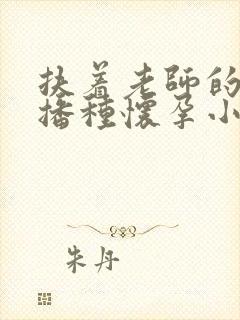 扶着老师的
播種懷孕小
朱丹